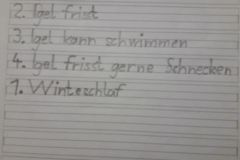 2. Igel frisst
3. Igel kann schwimmen
4. Igel frisst gerne Schnecken
1. Winterschlaf